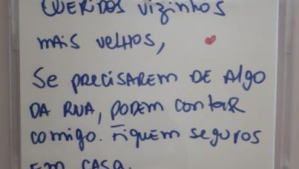 QUERIDOS vizinhos
mais velhos,
Se precisarem de algo
da rua, podem contar
comigo. Fiquem seguros
em casa.